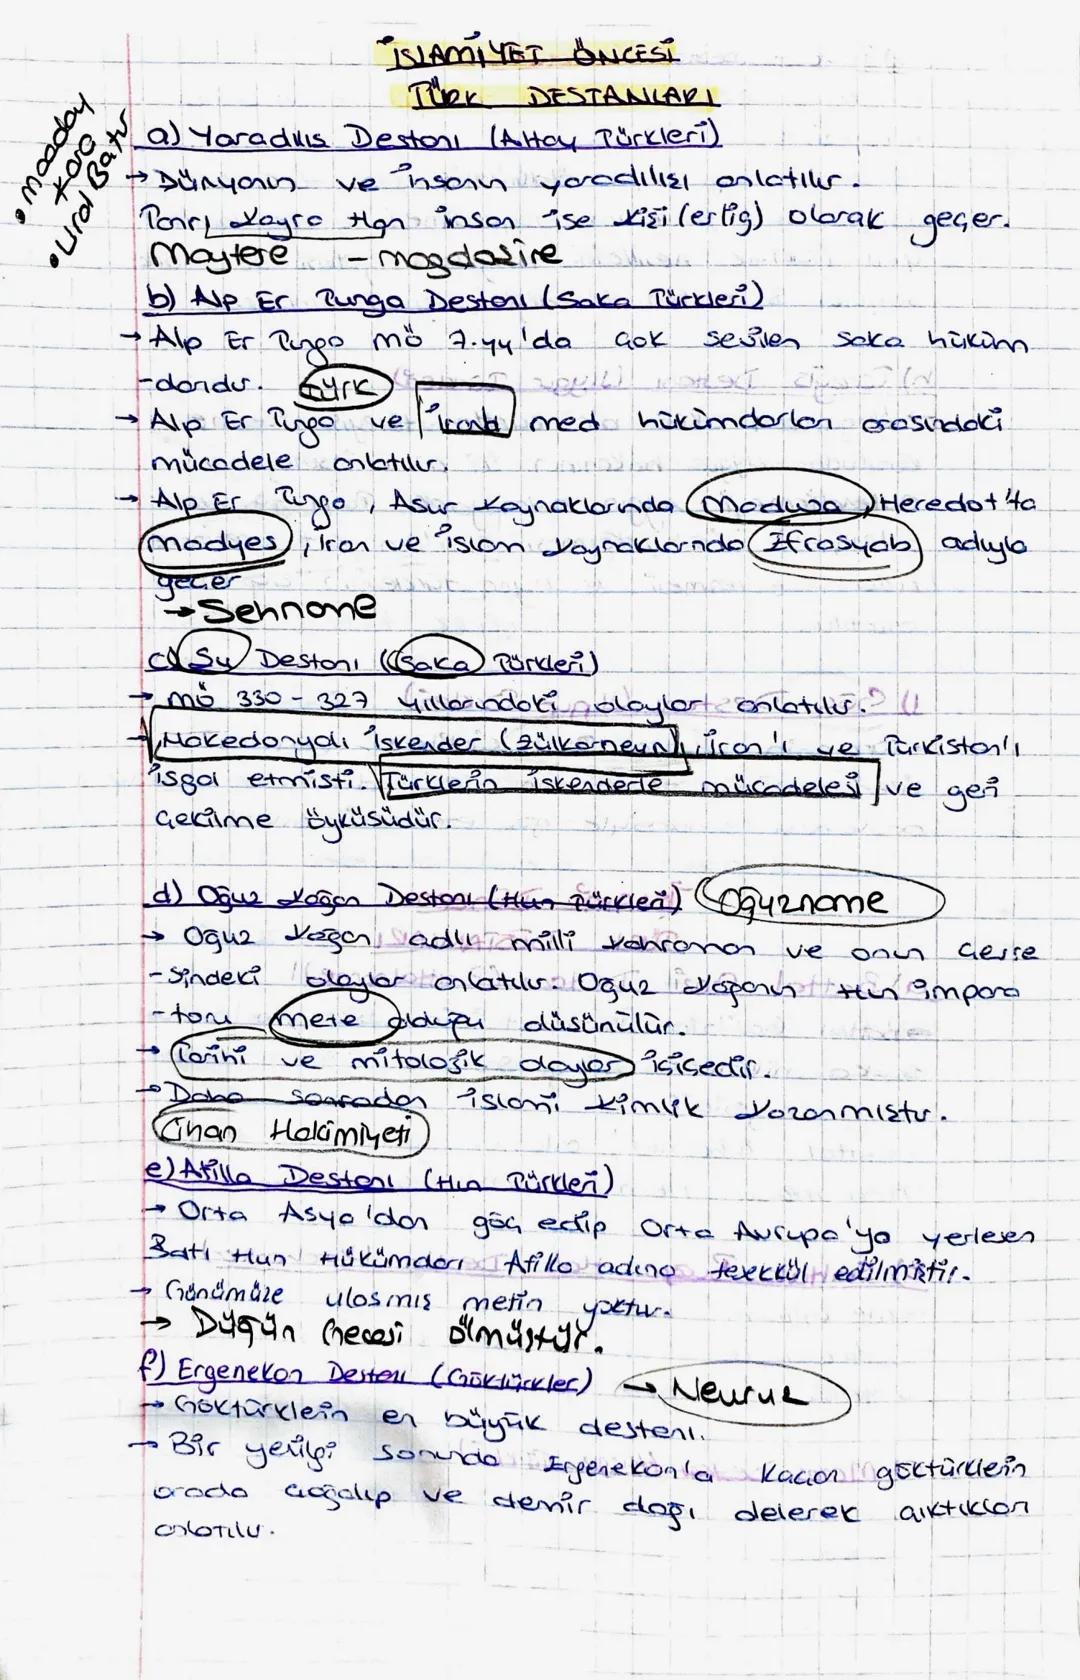 İSLAMİYET ÖNCESİ
TÜRK DESTANLARI
• Maaday Kara
• Ural Batır
a) Yaradılış Destanı (Altay Türkleri)
→ Dünyanın ve insanın yaradılışı anlatılır.
Tanrı Kayra Han insan ise kişi (erlig) olarak geçer.
Maytere - magdaşire
b) Alp Er Tunga Destanı (Saka Türkleri)
→ Alp Er Tunga mö 7.yy'da çok sevilen saka hüküm
-darıdır. türk
→ Alp Er Tunga ve İranlı med hükümdarları arasındaki
mücadele anlatılır.
→ Alp Er Tunga, Asur kaynaklarında Maduva, Heredot'ta
madyes, İran ve islam kaynaklarında Efrasyab adıyla
geçer
→ Şehname
c) Şu Destanı (Saka Türkleri)
→ mö 330 - 327 yıllarındaki olaylar anlatılır.
→ Makedonyalı İskender (Zülkarneyn), İran'ı ve Türkistan'ı
işgal etmişti. Türklerin İskenderle mücadelesi ve geri
çekilme öyküsüdür.
d) Oğuz Kağan Destanı (Hun Türkleri) Oğuzname
→ Oğuz Kağan adlı milli kahraman ve onun çevre
-sindeki olaylar anlatılır. Oğuz Kağanın Hun impara
-toru mete olduğu düşünülür.
→ Tarihi ve mitolojik olaylar içiçedir.
→ Daha sonradan islami kimlik kazanmıştır.
Cihan Hakimiyeti
e) Atilla Destanı (Hun Türkleri)
→ Orta Asya'dan göç edip Orta Avrupa'ya yerleşen
Batı Hun Hükümdarı Atilla adına teşekkül edilmiştir.
→ Günümüze ulaşmış metin yoktur.
→ Düğün Gecesi ölmüştür.
f) Ergenekon Destanı (Göktürkler) → Nevruz
→ Göktürklerin en büyük destanı.
→ Bir yenilgi sonunda Ergenekon'a kaçan göktürklerin
orada çoğalıp ve demir dağı delerek çıktıkları
anlatılır.